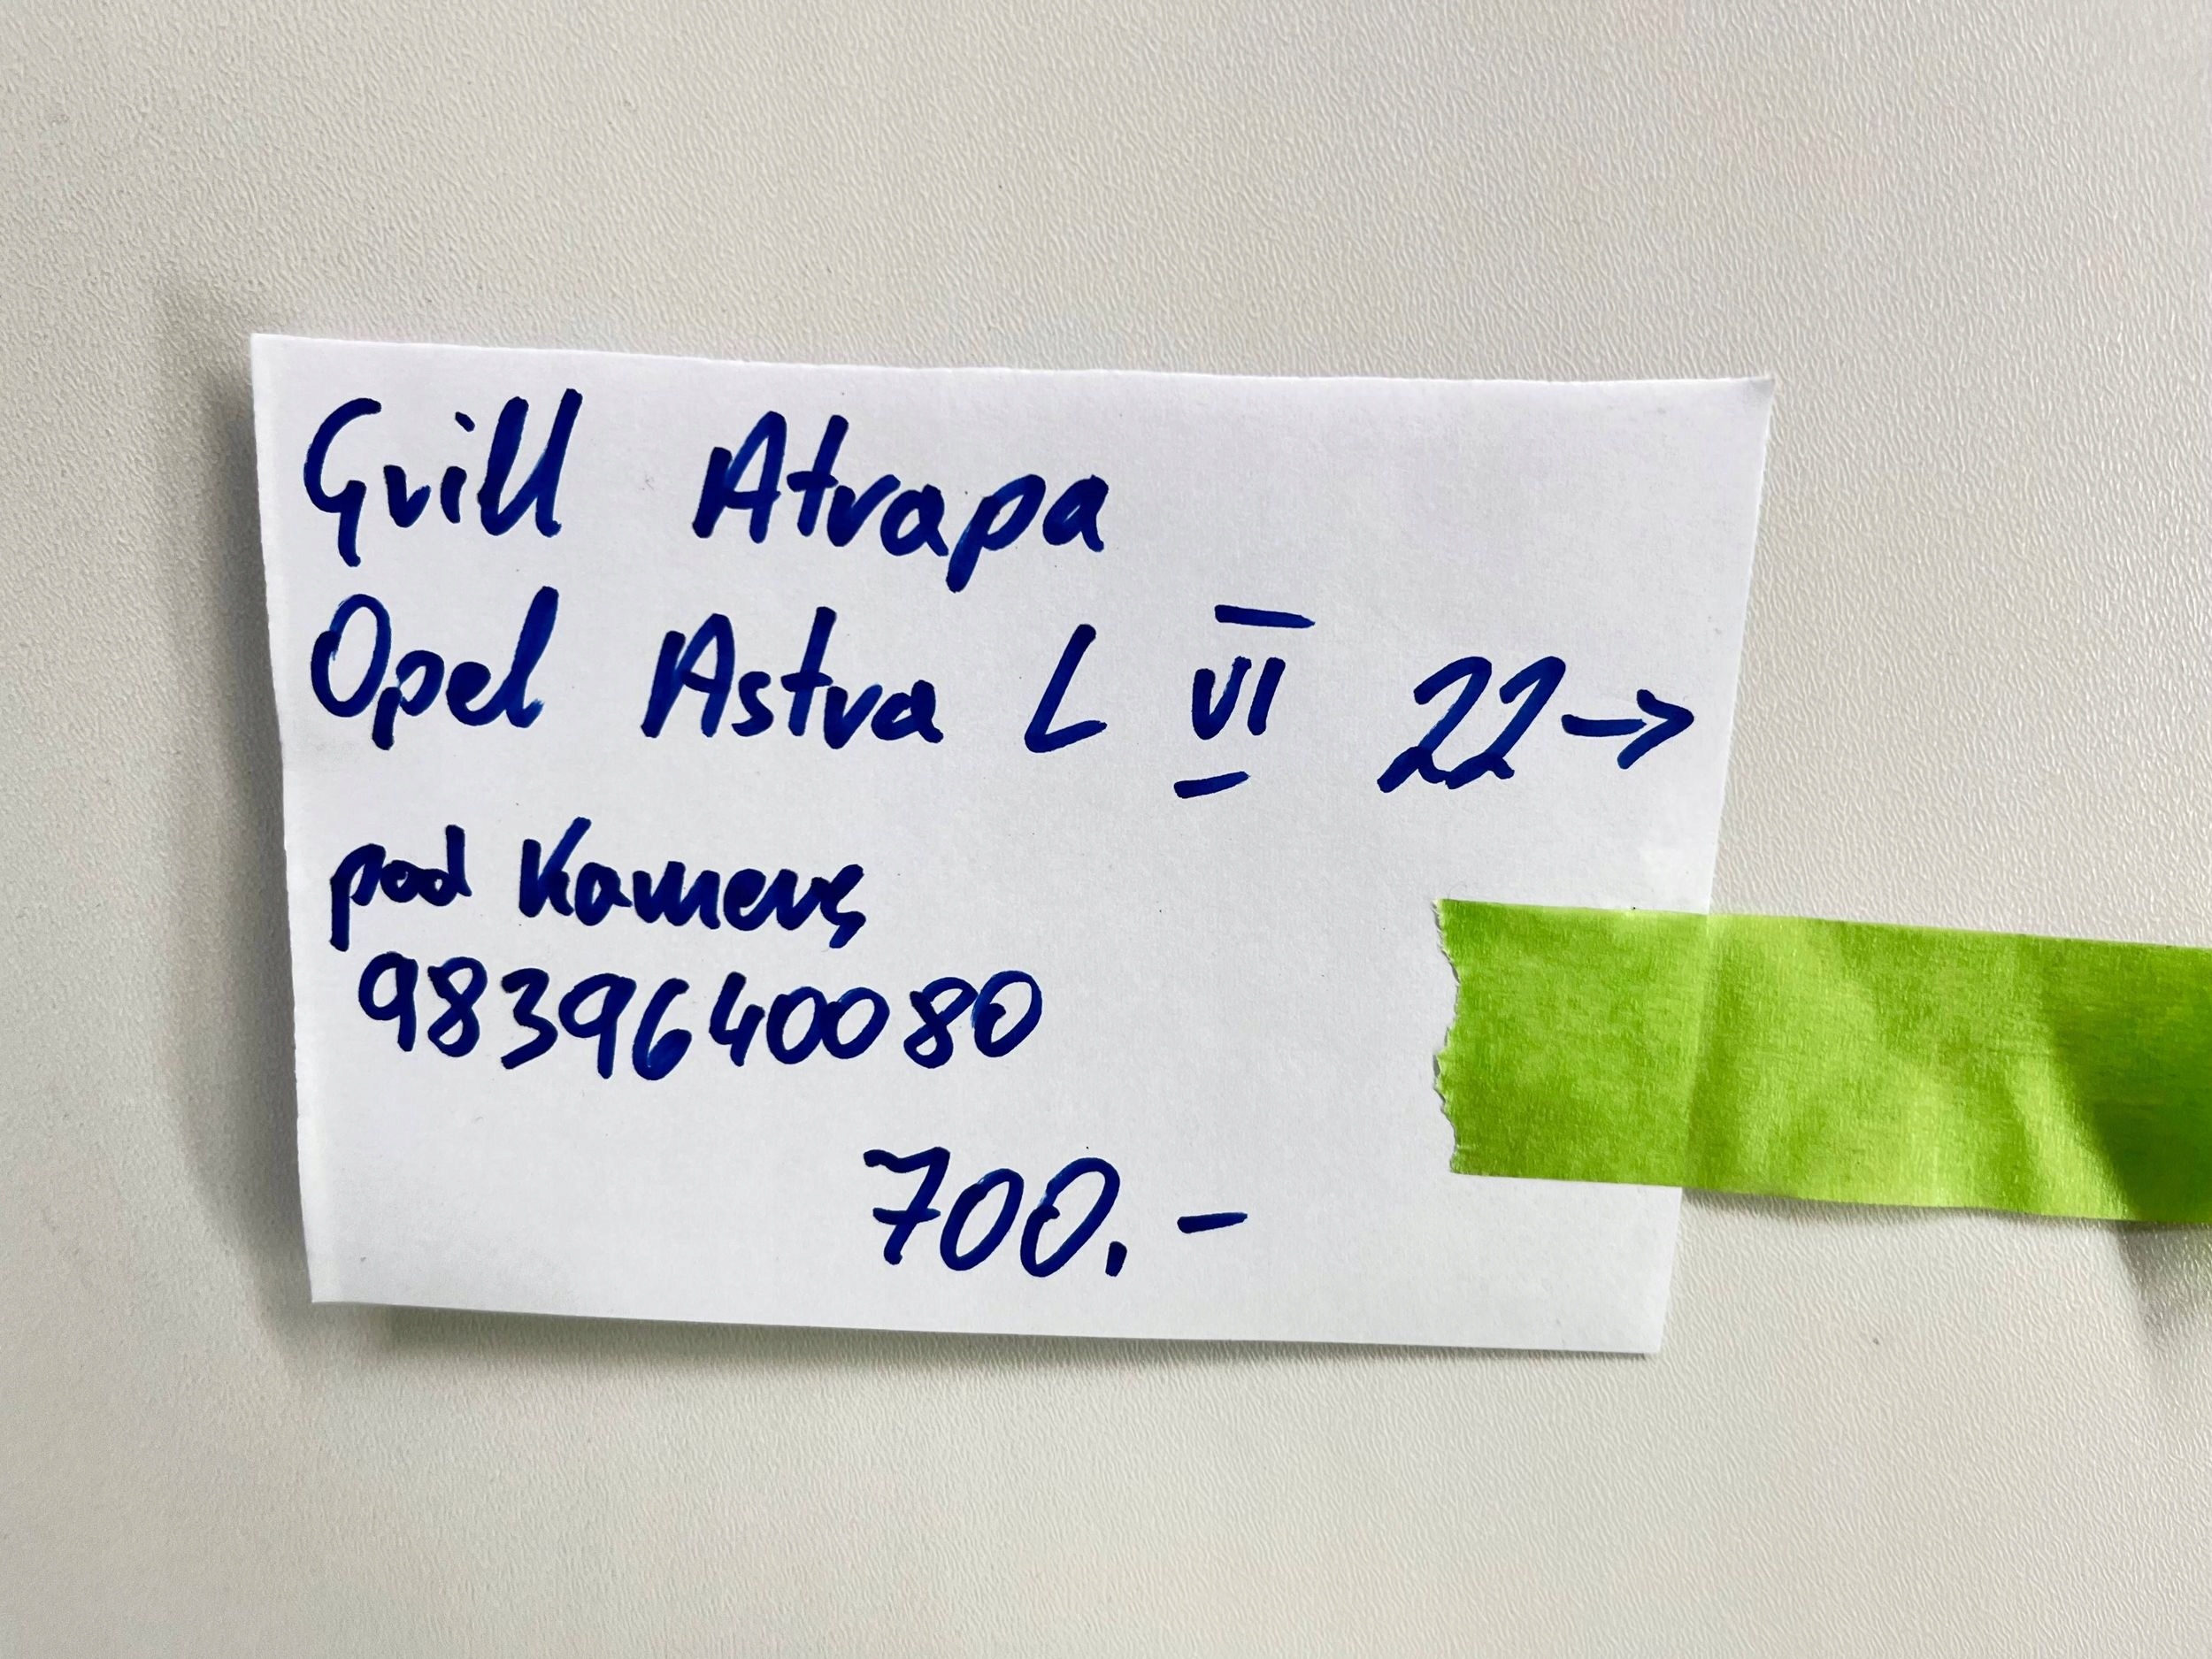 Grill Atrapa
Opel Astra L VI 22→
pod Kamerę
9839640080
700.-